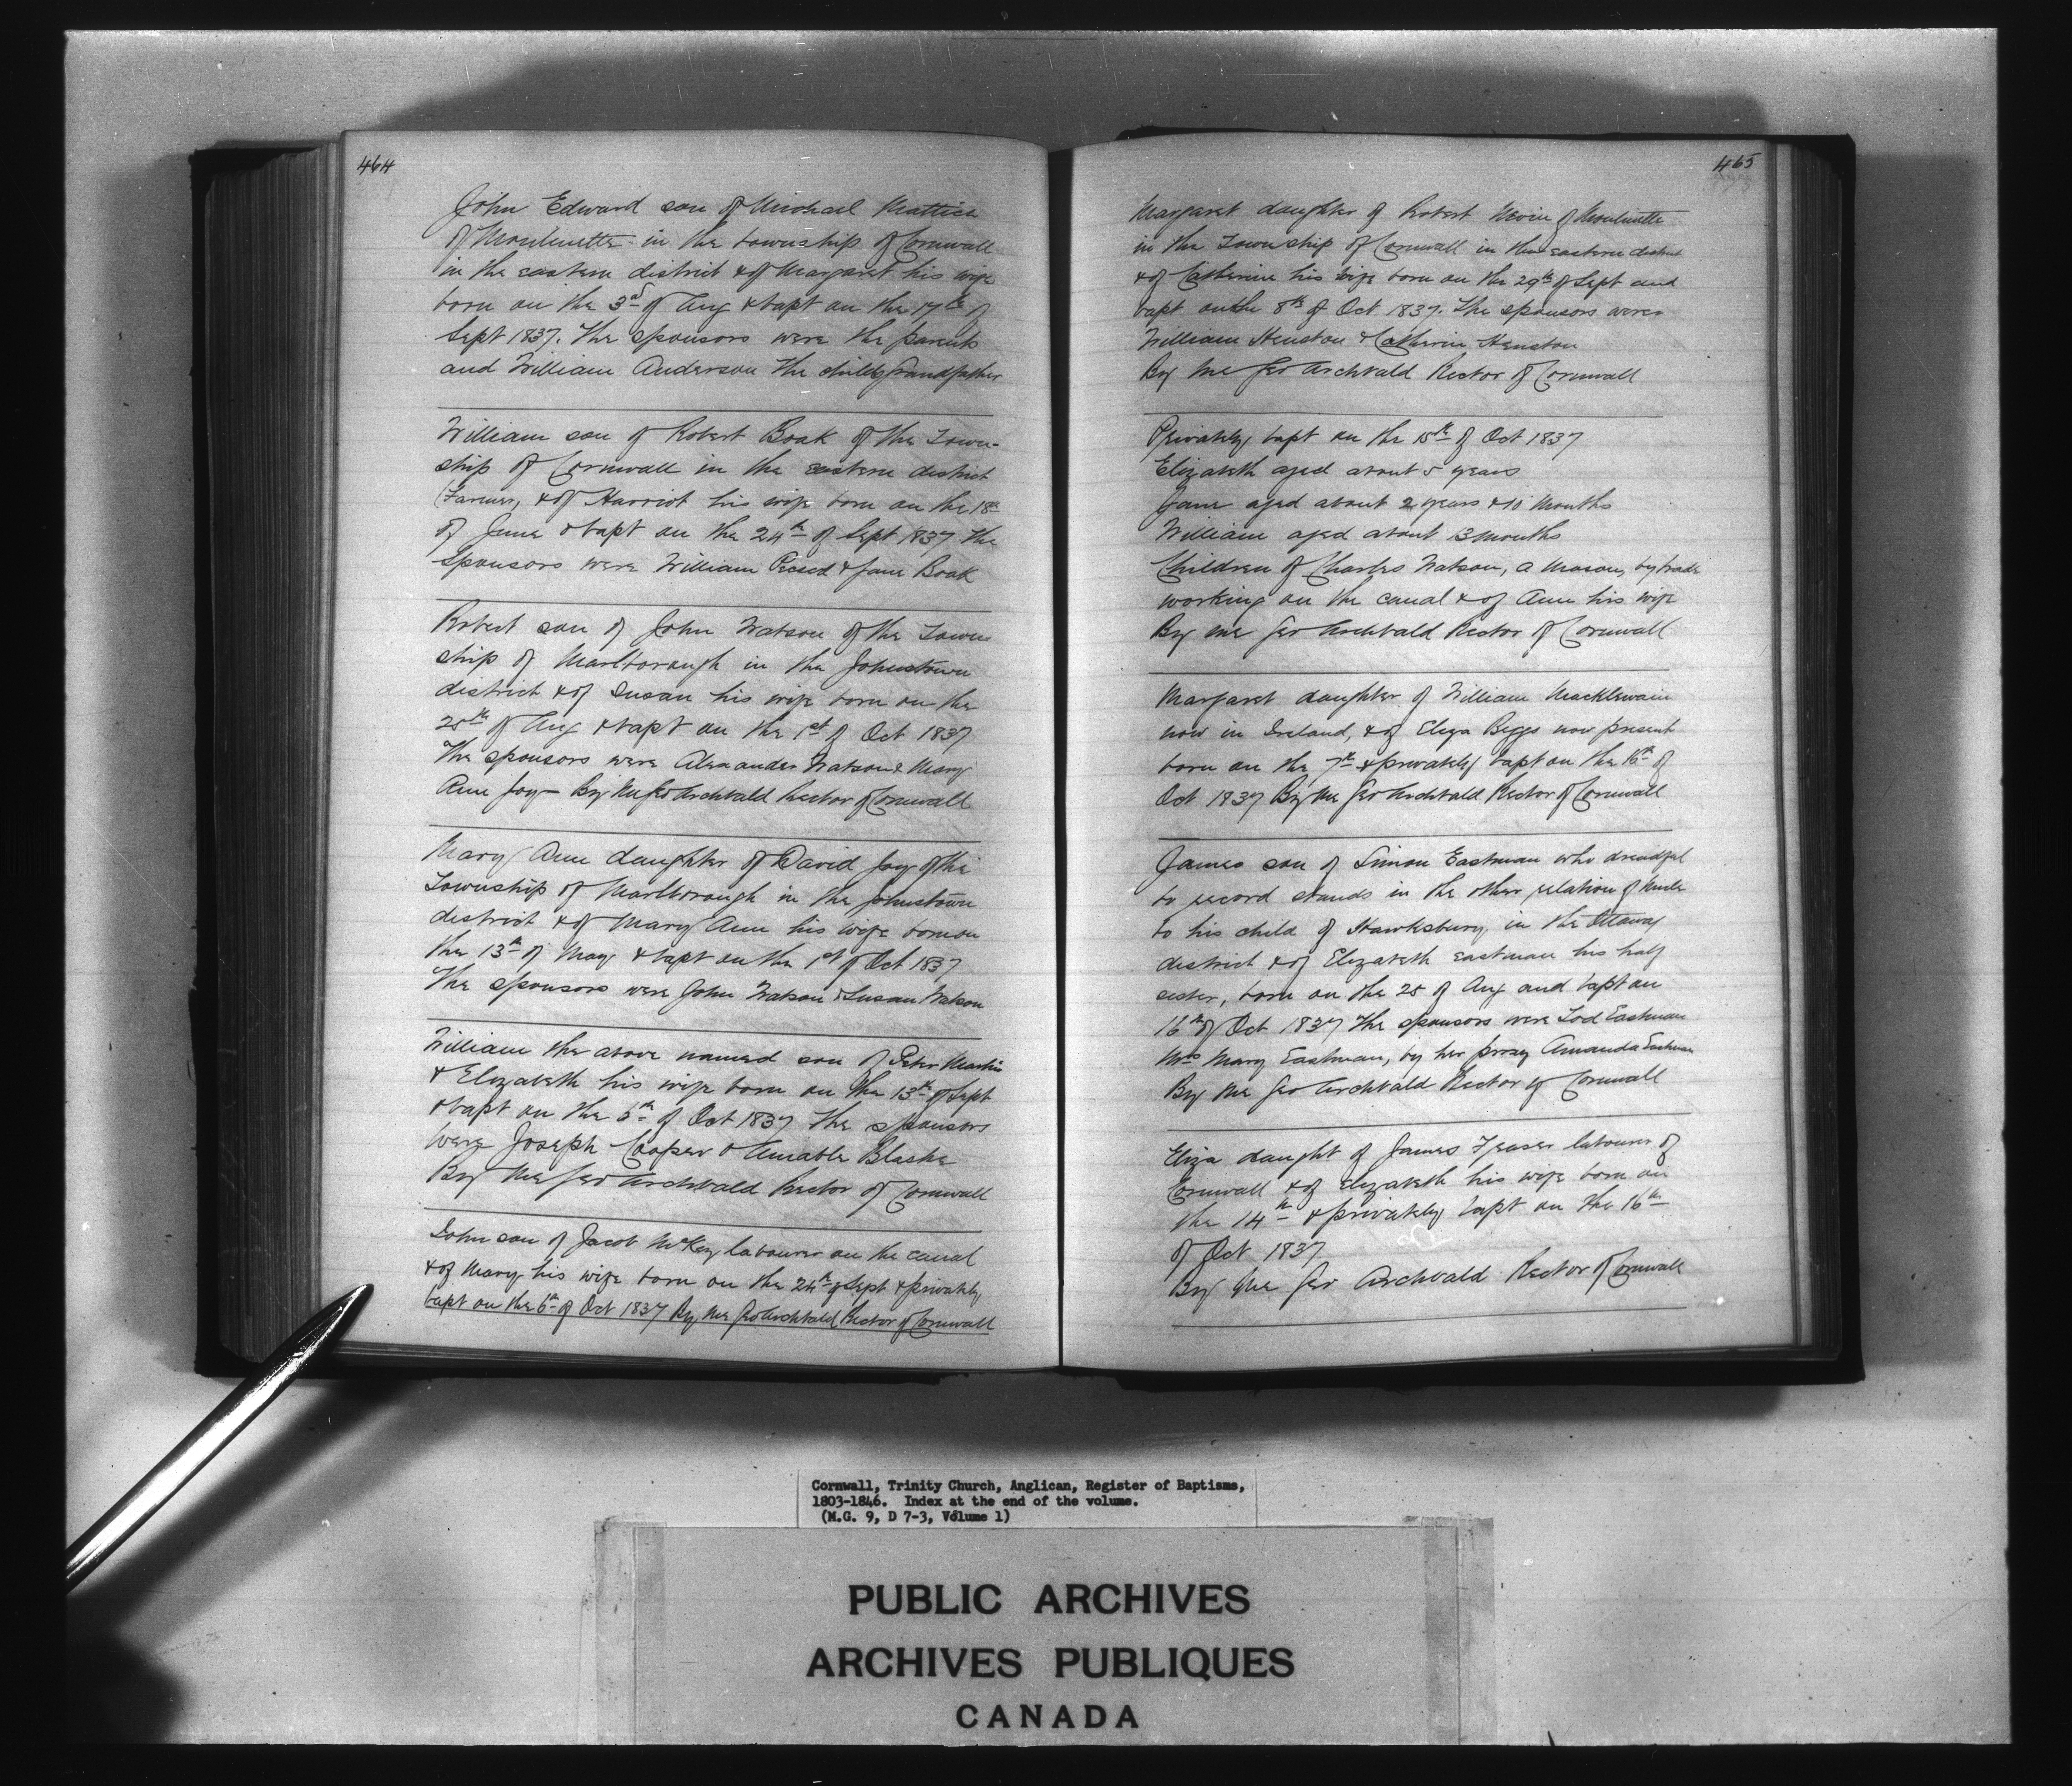 464
John Edward son of Michael Mattice
of Moulinette in the township of Cornwall
in the eastern district & of Margaret his wife
born on the 3d of Aug & bapt on the 17th of
Sept 1837. The sponsors were the parents
and William Anderson the childs Grandfather
William son of Robert Boak of the Town-
ship of Cornwall in the eastern district
Farmer, & of Harriot his wife born on the 18th
of June & bapt on the 24th of Sept 1837 The
sponsors were William & Jane Boak
Robert son of John Watson of the Town
ship of Marlborough in the Johnstown
district & of Susan his wife born on the
25th of Aug & bapt on the 1st of Oct 1837
The sponsors were Alexander Watson & Mary
Ann Joy — By Me Geo Archbald Rector of Cornwall
Mary Ann daughter of David Joy of the
Township of Marlborough in the Johnstown
district & of Mary Ann his wife born on
the 13th of May & bapt on the 1st of Oct 1837
The sponsors were John Watson & Susan Watson
William the above named son of Peter Martin
& Elizabeth his wife born on the 13th of Sept
& bapt on the 5th of Oct 1837 The sponsors
were Joseph Cooper & Amable Blache
By Me Geo Archbald Rector of Cornwall
John son of Jacob McKay labourer on the canal
& of Mary his wife born on the 24th of Sept & privately
bapt on the 6th of Oct 1837 By me Geo Archbald Rector of Cornwall
465
Margaret daughter of Robert Nevin of Moulinette
in the Township of Cornwall in the eastern district
& of Catherine his wife born on the 29th of Sept and
bapt on the 8th of Oct 1837. The sponsors were
William Henston & Catherine Henston
By me Geo Archbald Rector of Cornwall
Privately bapt on the 15th of Oct 1837
Elizabeth aged about 5 years
Jane aged about 2 years & 10 Months
William aged about 13 months
Children of Charles Watson, a Mason, by trade
working on the canal & of Ann his wife
By me Geo Archbald Rector of Cornwall
Margaret daughter of William Macklewain
now in Ireland, & of Eliza Beggs now present
born on the 7th & privately bapt on the 16th of
Oct 1837 By Me Geo Archbald Rector of Cornwall
James son of Simon Eastman who dreadful
to record stands in the other relation of Uncle
to his child of Hawksbury in the Ottaway
district & of Elizabeth Eastman his half
sister, born on the 25 of Aug and bapt on
16th of Oct 1837 The sponsors were Tod Eastman
Mrs Mary Eastman, by her proxy Amanda Eastman
By Me Geo Archbald Rector of Cornwall
Eliza daught of James Fraser labourer of
Cornwall & of Elizabeth his wife born on
the 14th & privately bapt on the 16th
of Oct 1837
By Me Geo Archbald Rector of Cornwall
Cornwall, Trinity Church, Anglican, Register of Baptisms,
1803-1846. Index at the end of the volume.
(M.G. 9, D 7-3, Volume 1)
PUBLIC ARCHIVES
ARCHIVES PUBLIQUES
CANADA